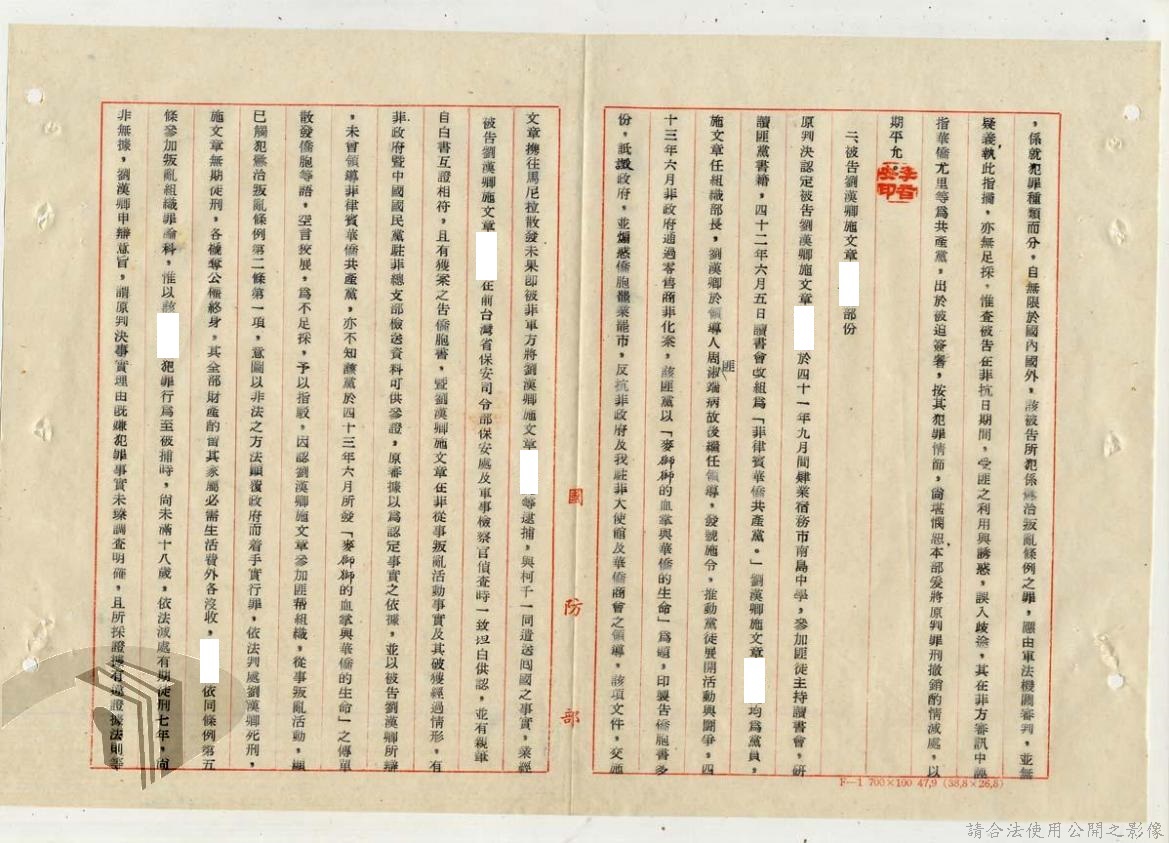 ，係就犯罪種類而分，自無限於國內國外，該被告所犯係懲治叛亂條例之罪，應由軍法機關審判，並無
疑義執此指摘，亦無足採，惟查被告在菲抗日期間，受匪之利用與誘惑，誤入歧途，其在菲方審訊中誣
指華僑尤里等為共產黨，出於被迫簽署，按其犯罪情節，尚堪憫恕本部爰將原判罪刑撤銷酌情減處，以
期平允
二、被告劉漢卿施文章 部份
原判決認定被告劉漢卿施文章 於四十一年九月間肄業宿務市南島中學，參加匪徒主持讀書會，研
讀匪黨書籍，四十二年六月五日讀書會改組為「菲律賓華僑共產黨。」劉漢卿施文章 均為黨員，
施文章任組織部長，劉漢卿於領導人周淑端病故後繼任領導，發號施令，推動黨徒展開活動與鬪爭，四
匪
十三年六月菲政府通過零售商菲化案，該匪黨以「麥獅獅的血掌與華僑的生命」為題，印製告僑胞書多
份，詆譭政府，並煽惑僑胞罷業罷市，反抗菲政府及我駐菲大使館及華僑商會之領導，該項文件，交施
文章携往馬尼拉散發未果卽被菲軍方將劉漢卿施文章 等逮捕，與柯千一同遣送囘國之事實，業經
被告劉漢卿施文章 在前台灣省保安司令部保安處及軍事檢察官偵查時一致坦白供認，並有親筆
自白書互證相符，且有獲案之告僑胞書，暨劉漢卿施文章在菲從事叛亂活動事實及其破獲經過情形，有
菲政府暨中國國民黨駐菲總支部檢送資料可供參證，原審據以為認定事實之依據，並以被告劉漢卿所辯
，未曾領導菲律賓華僑共產黨，亦不知該黨於四十三年六月所發「麥獅獅的血掌與華僑的生命」之傳單
散發僑胞等語，空言狡展，為不足採，予以指駁，因認劉漢卿施文章參加匪幫組織，從事叛亂活動，顯
已觸犯懲治叛亂條例第二條第一項，意圖以非法之方法顛覆政府而着手實行罪，依法判處劉漢卿死刑，
施文章無期徒刑，各褫奪公權終身，其全部財產酌留其家屬必需生活費外各沒收， 依同條例第五
條參加叛亂組織罪論科，惟以該 犯罪行為至被捕時，尚未滿十八歲，依法減處有期徒刑七年，尚
非無據，劉漢卿申辯意旨，謂原判決事實理由既嫌犯罪事實未臻調查明確，且所採證據有違證據法則等
國防部
F—1 700×100 47,9 (38,8×26,8)
請合法使用公開之影像